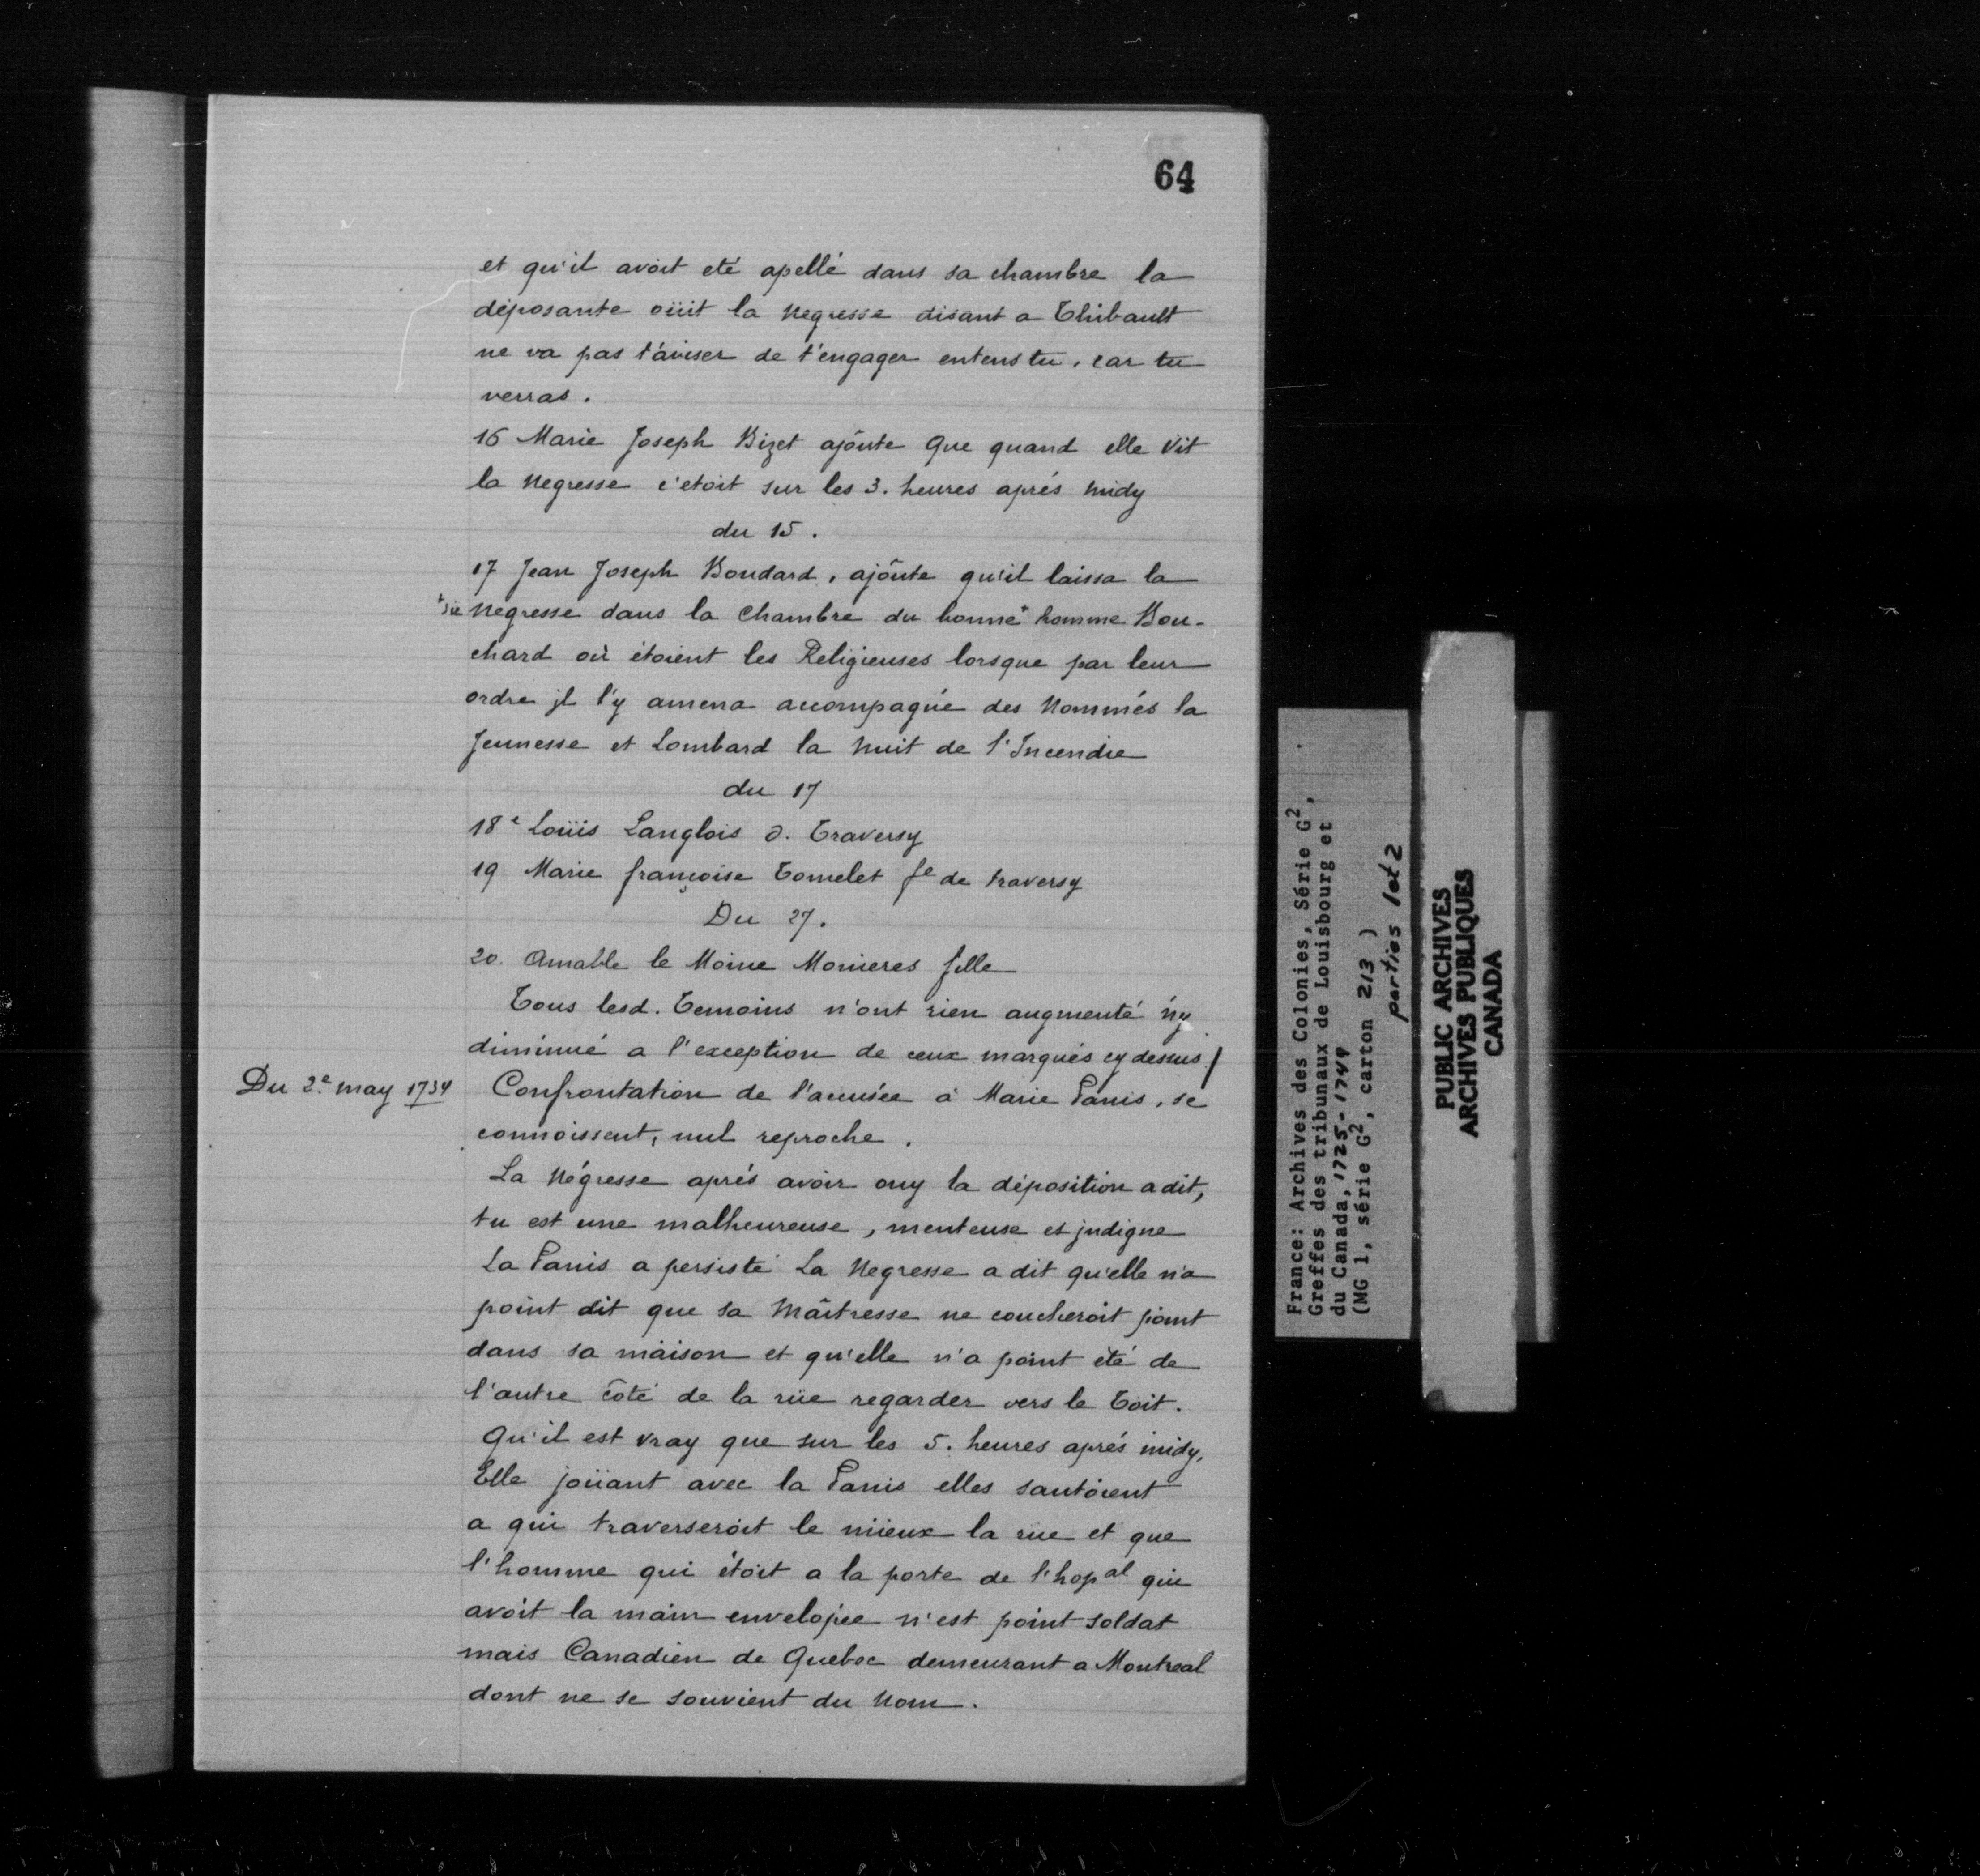 64
et qu'il avoit eté apellé dans sa chambre la
déposante oüit la Negresse disant a Thibault
ne va pas t'aviser de t'engager entens tu, car tu
verras.
16 Marie Joseph Bizet ajôute Que quand elle Vit
la Negresse c'etoit sur les 3. heures aprés midy
du 15.
17 Jean Joseph Boudard, ajôute qu'il laissa la
+sic Negresse dans la Chambre du bonne+ homme Bou-
chard où étoient les Religieuses lorsque par leur
ordre jl l'y amena accompagné des Nommés la
Jeunesse et Lombard la Nuit de l'Incendie
du 17
18e Loüis Langlois d. Traversy
19 Marie françoise Tomelet fe de traversy
Du 27.
20. Amable le Moine Monieres fille
Tous lesd. Temoins n'ont rien augmenté n'y
diminué a l'exception de ceux marqués cy dessus /
Du 2e may 1734
Confrontation de l'accusée à Marie Panis, se
connoissent, nul reproche.
La Négresse aprés avoir ouy la déposition a dit,
tu est une malheureuse, menteuse et jndigne
La Panis a persisté La Negresse a dit qu'elle n'a
point dit que sa Mâitresse ne coucheroit point
dans sa maison et qu'elle n'a point été de
l'autre côté de la rüe regarder vers le Toit.
Qu'il est vray que sur les 5. heures aprés midy,
Elle joüant avec la Panis elles sautoient
a qui traverseroit le mieux la rue et que
l'homme qui étoit a la porte de l'hopal qui
avoit la main envelopée n'est point soldat
mais Canadien de Quebec demeurant a Montreal
dont ne se souvient du Nom.
France: Archives des Colonies, Série G2,
Greffes des tribunaux de Louisbourg et
du Canada, 1725-1749
(MG 1, série G2, carton 213 )
parties 1 et 2
PUBLIC ARCHIVES
ARCHIVES PUBLIQUES
CANADA